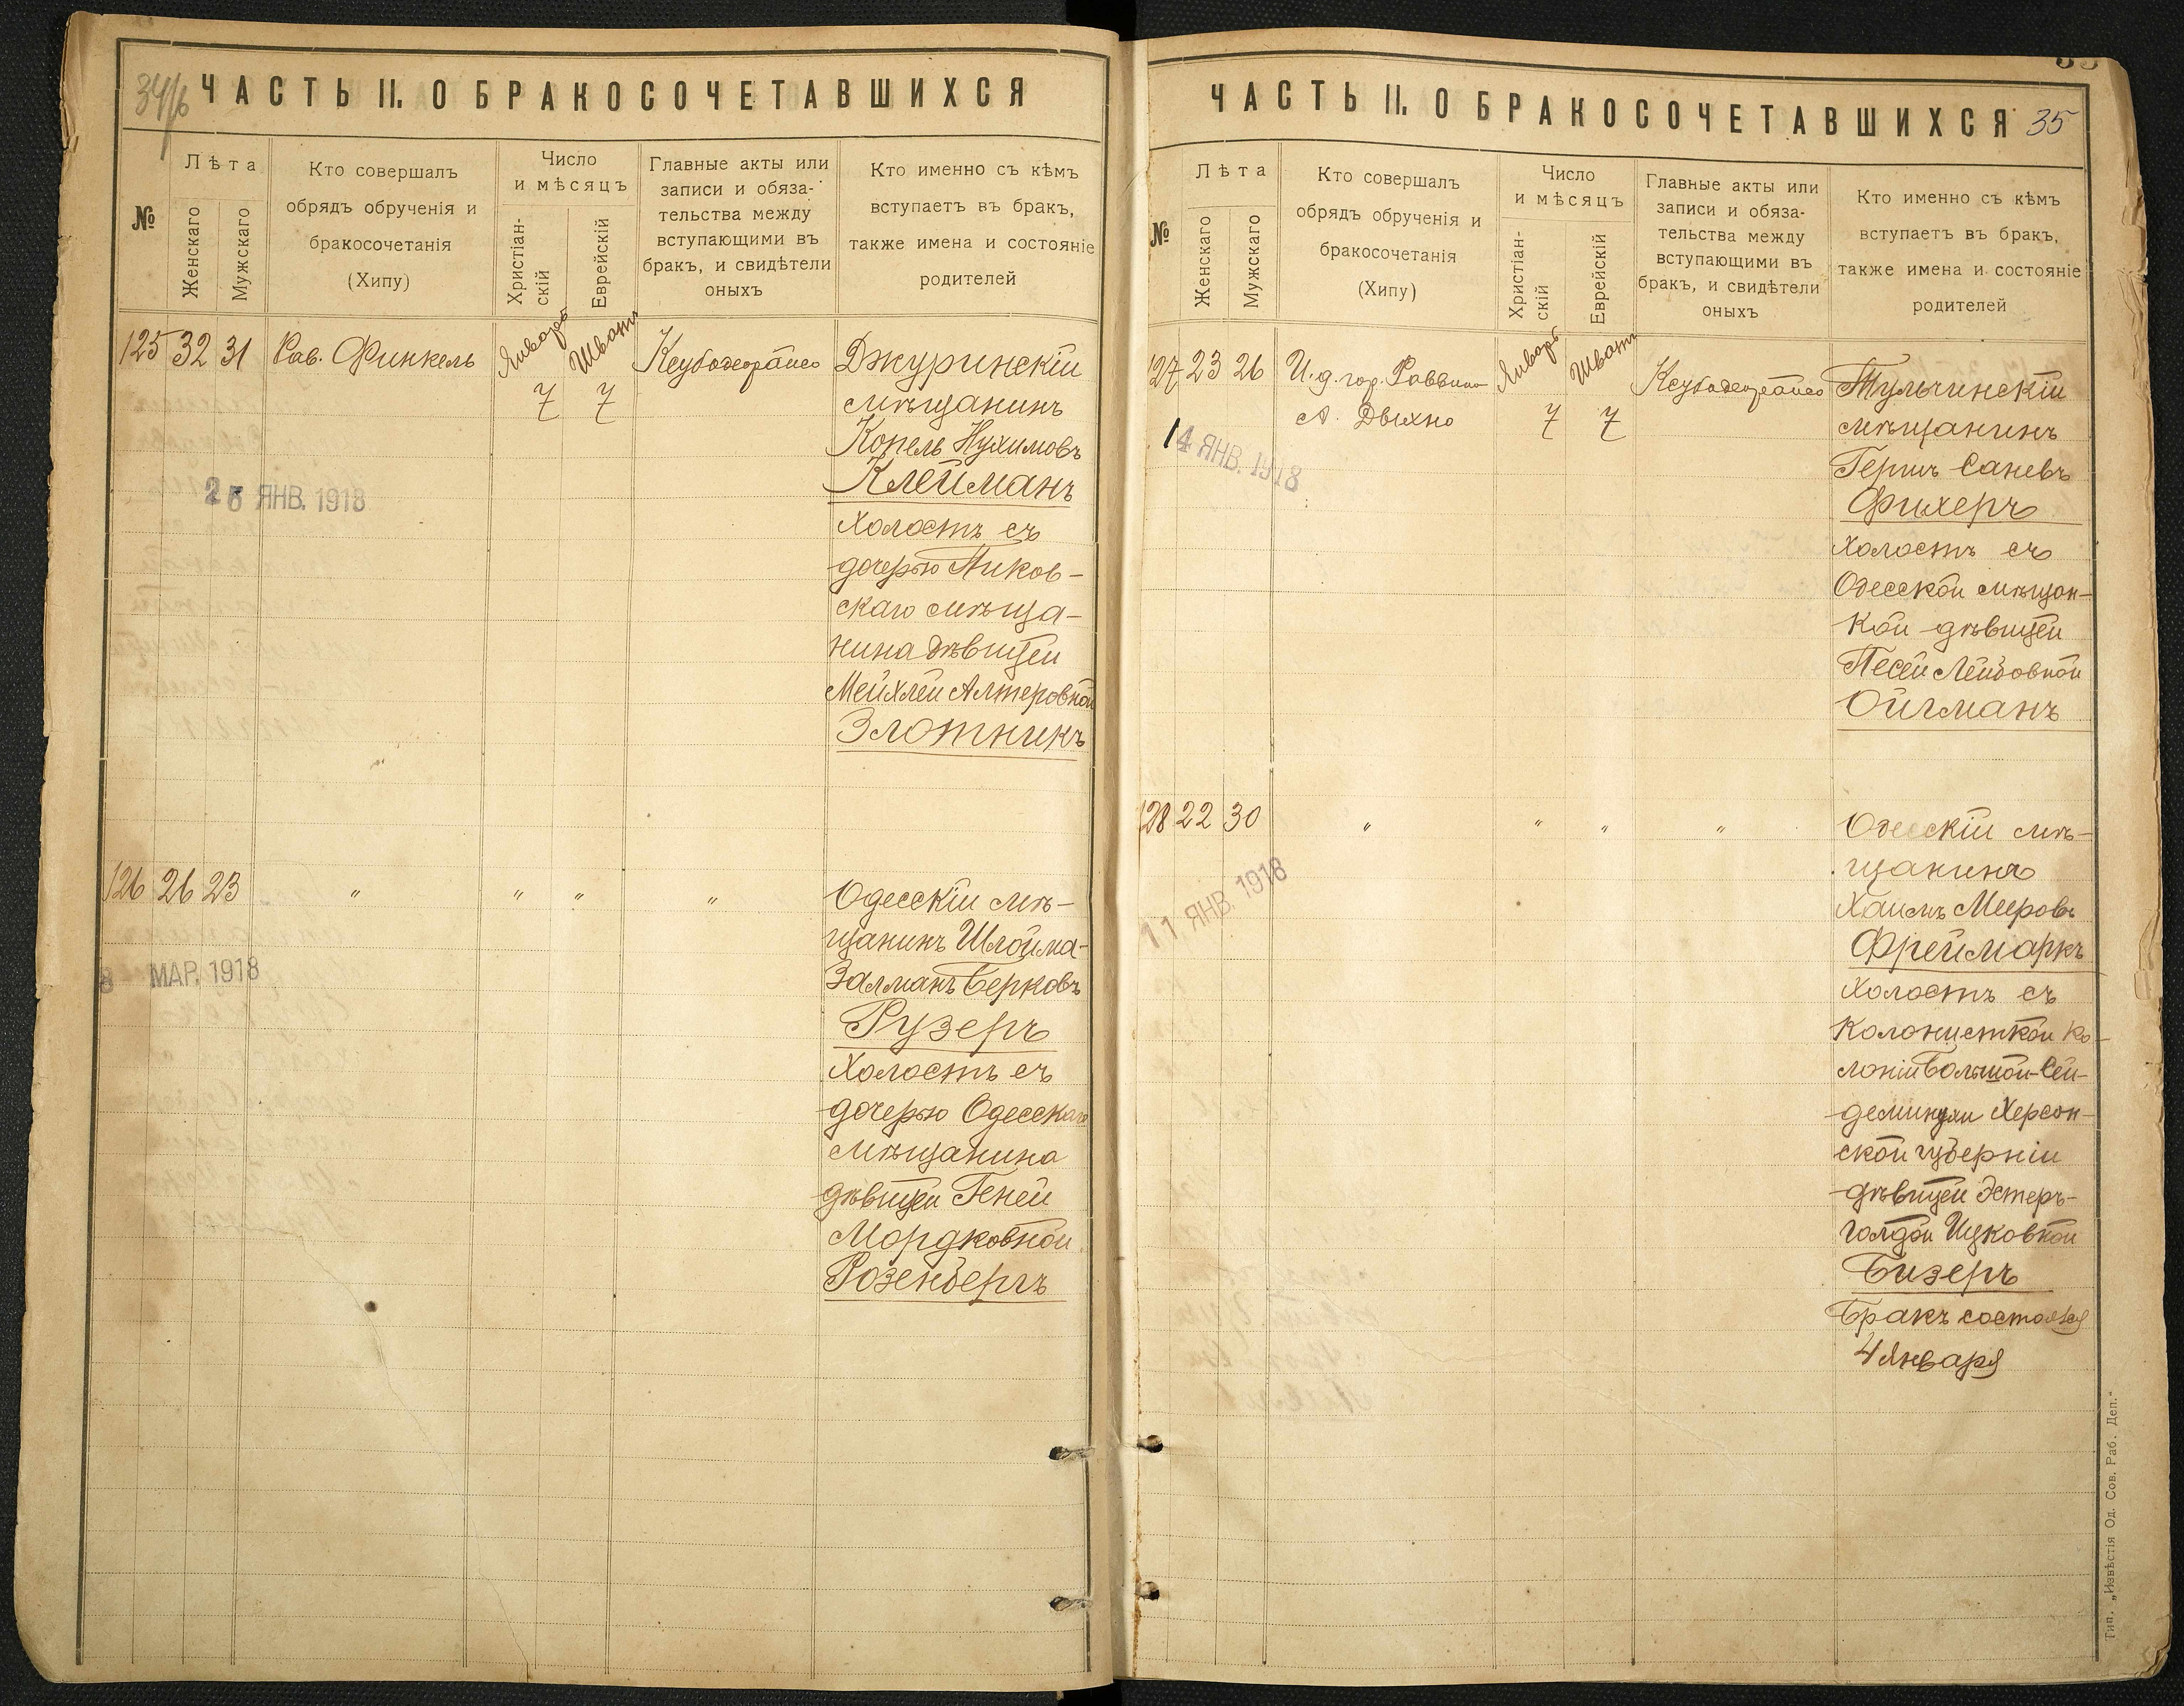 34/б
ЧАСТЬ II. О БРАКОСОЧЕТАВШИХСЯ
№
Лѣта
Женскаго
Мужскаго
Кто совершалъ
обрядъ обрученія и
бракосочетанія
(Хипу)
Число
и мѣсяцъ
Христіан-
скій
Еврейскій
Главные акты или
записи и обяза-
тельства между
вступающими въ
бракъ, и свидѣтели
оныхъ
Кто именно съ кѣмъ
вступаетъ въ бракъ,
также имена и состояніе
родителей
125 32 31 Рав. Финкель
Январь 7
Шватъ 7
Джуринскій
мѣщанинъ
Копель Нухимовъ
Клейманъ
холостъ съ
дочерью Пиков-
скаго мѣща-
нина дѣвицей
Мейхлей Алтеровной
Злотникъ
ЯНВ. 1918
126 26 23 " " " "
Одесскій мѣ-
щанинъ Шлойма-
Залманъ Берковъ
Рузеръ
холостъ съ
дочерью Одесскаго
мѣщанина
дѣвицей Геней
Мордковной
Розенбергъ
8 МАР. 1918
35
ЧАСТЬ II. О БРАКОСОЧЕТАВШИХСЯ 35
№
Лѣта
Женскаго
Мужскаго
Кто совершалъ
обрядъ обрученія и
бракосочетанія
(Хипу)
Число
и мѣсяцъ
Христіан-
скій
Еврейскій
Главные акты или
записи и обяза-
тельства между
вступающими въ
бракъ, и свидѣтели
оныхъ
Кто именно съ кѣмъ
вступаетъ въ бракъ,
также имена и состояніе
родителей
127 23 26 И. д. гор. Раввина
А. Двихно
Январь 7
Шватъ 7
Тульчинскій
мѣщанинъ
Гершъ Саневъ
Фихеръ
холостъ съ
Одесской мѣщан-
кой дѣвицей
Песей Лейбовной
Ойгманъ
14 ЯНВ. 1918
128 22 30 " " " "
Одесскій мѣ-
щанинъ
Хаимъ Мееровъ
Фреймаркъ
холостъ съ
колонисткой ко-
лоніи Большой-Сей-
деминухи Херсон-
ской губерніи
дѣвицей Эстеръ-
Голдой Ицковной
Бизеръ
Бракъ состоялся
4 Января
11 ЯНВ. 1918
Тип. „Извѣстія Од. Сов. Раб. Деп."